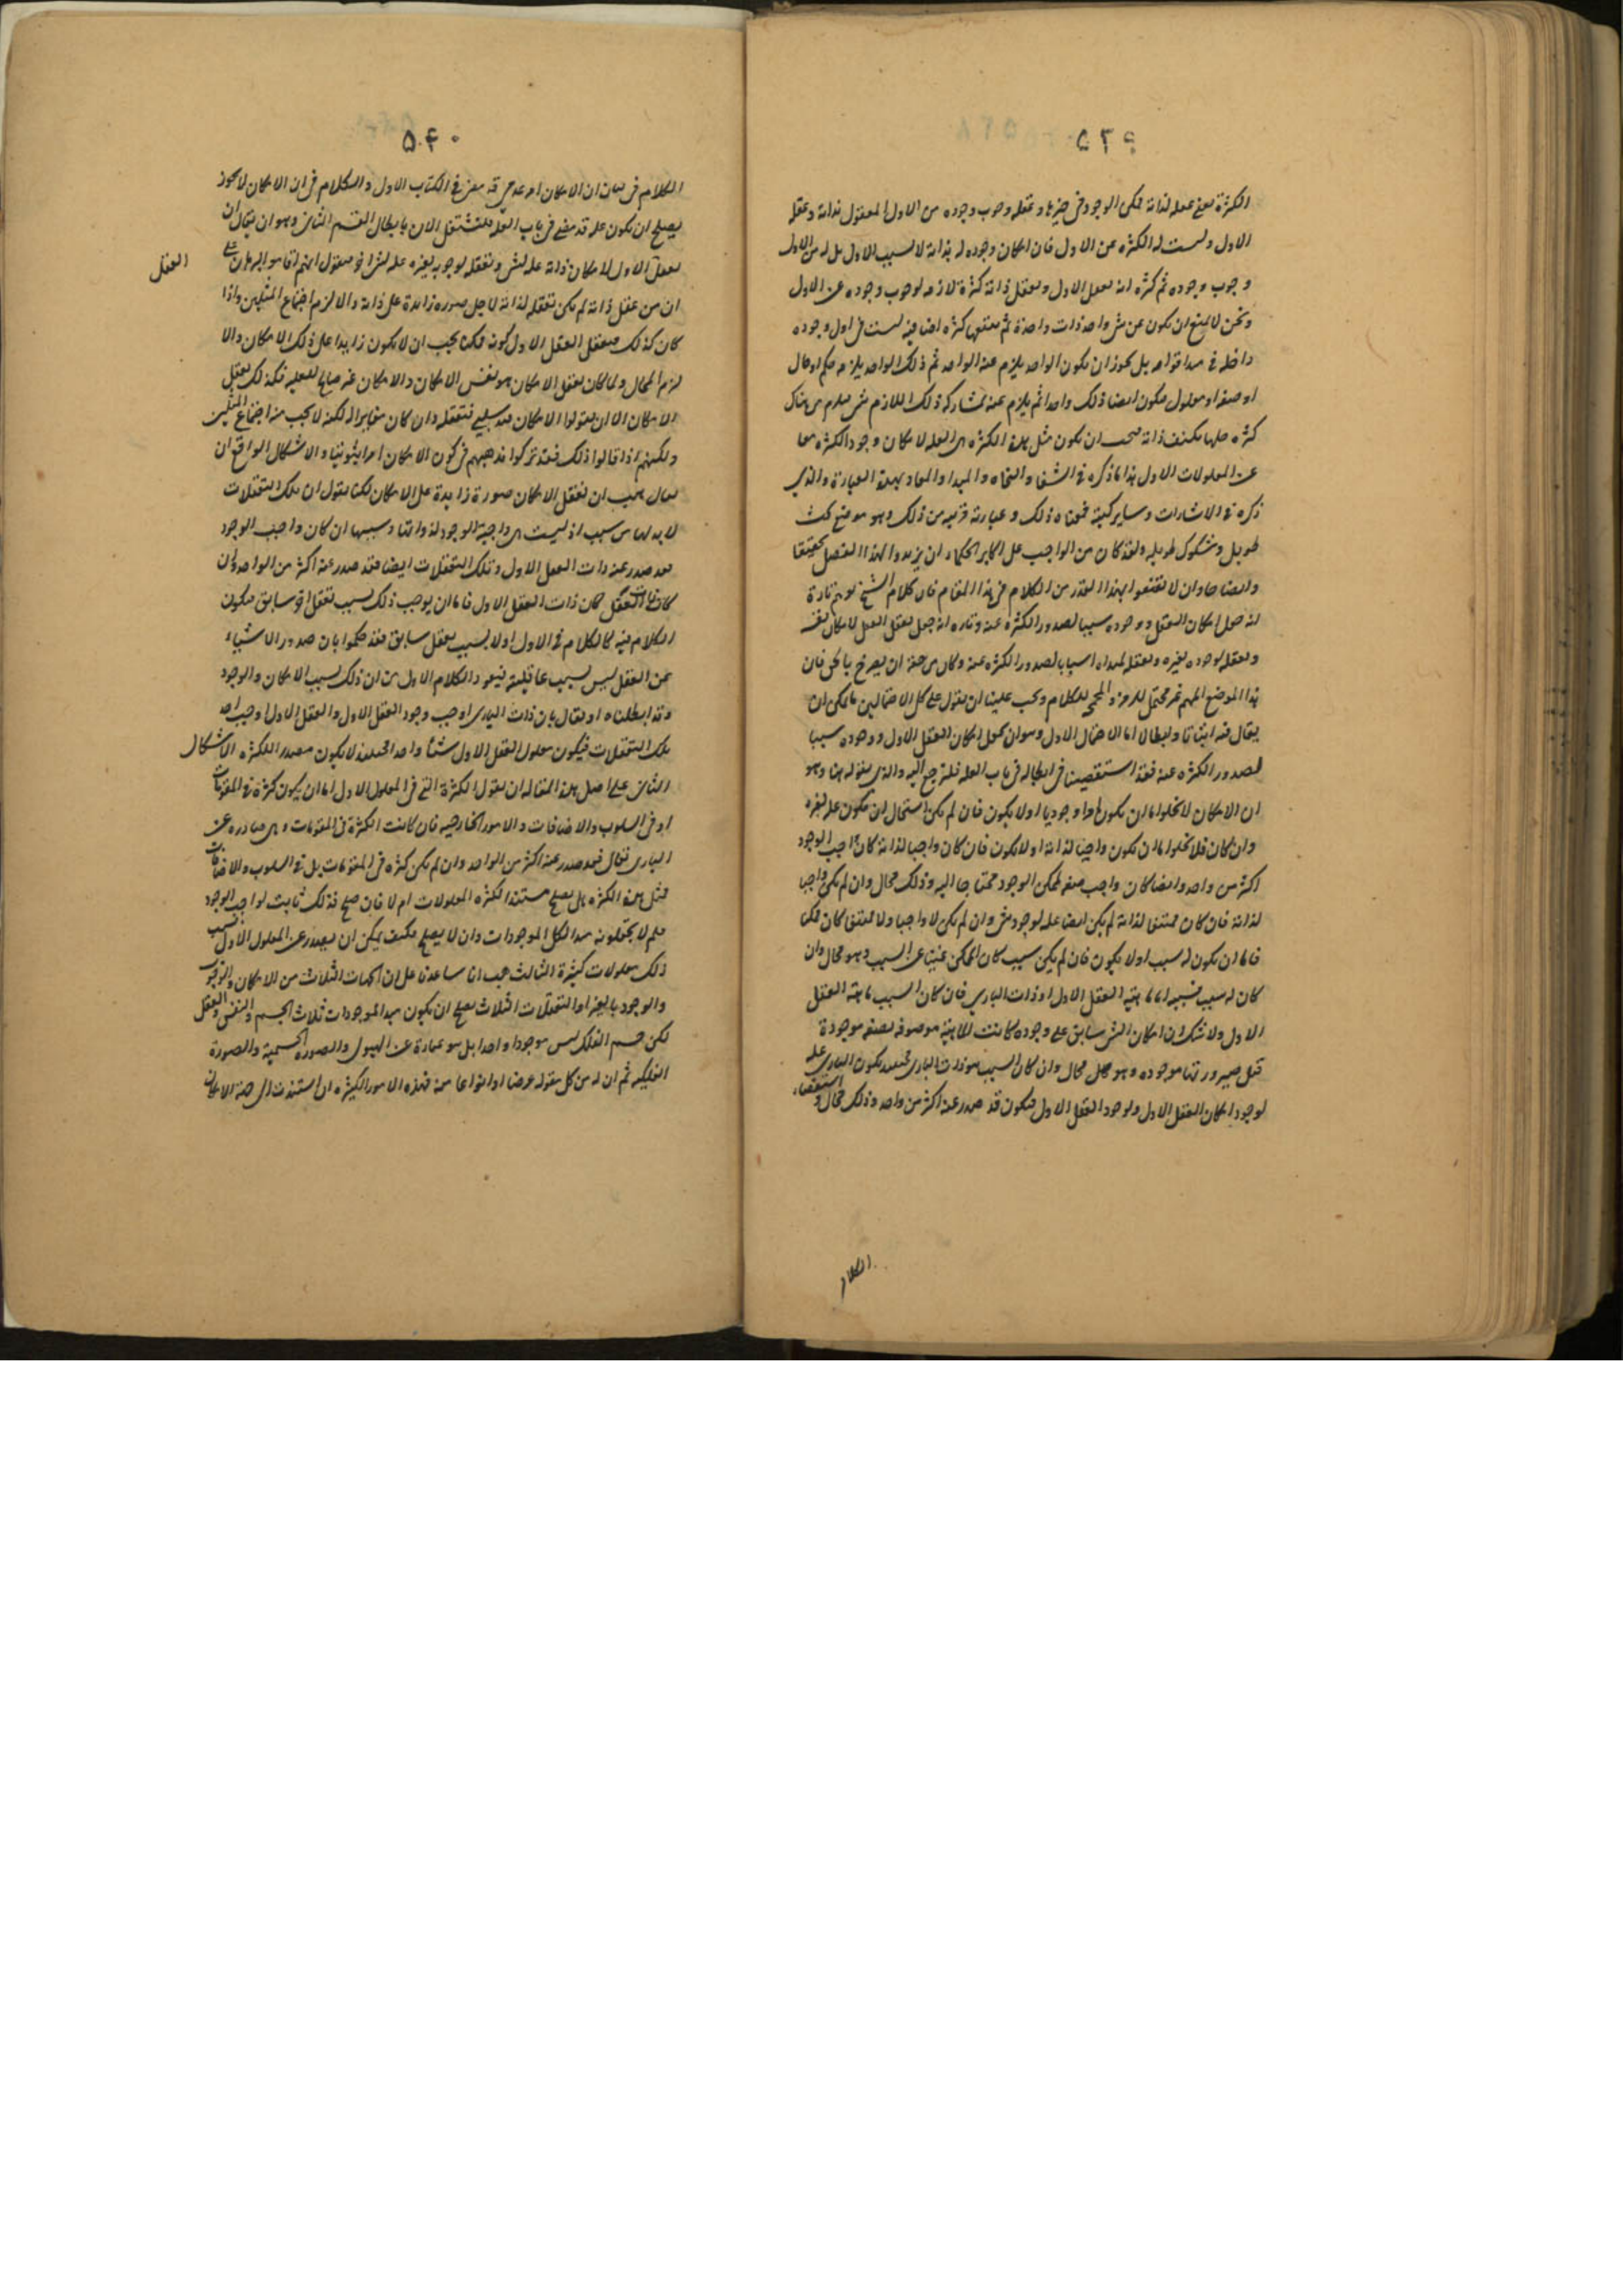 ٥٣٩
الكثرة معنى عقله لذاته ممكن الوجود في حيزها وعقله وجوب وجوده من الاول المعقول بذاته وعقله
الاول وليست له الكثرة عن الاول فان امكان وجوده له بذاته لا بسبب الاول بل له من الاول
وجوب وجوده ثم كثرة انه يعقل الاول ويعقل ذاته كثرة لازمة لوجوب وجوده عن الاول
ونحن لا نمنع ان يكون عن شي واحد ذات واحدة ثم يتبعها كثرة اضافية ليست في اول وجوده
داخلة في مبدا قوامه بل يجوز ان يكون الواحد يلزم عنه الواحد ثم ذلك الواحد يلزمه حكم او حال
او صفة او معلول ويكون ايضا ذلك واحدا ثم يلزم عنه بمشاركة ذلك اللازم شي فيلزم من هناك
كثرة كلها يكتنف ذاته فيجب ان يكون مثل هذه الكثرة هي العلة لامكان وجود الكثرة معا
عن المعلولات الاول هذا ما ذكره في الشفا والنجاه والمبدا والمعاد بهذه العبارة والذي
ذكره في الاشارات وساير كتبه فمعناه ذلك وعبارته قريبة من ذلك وهو موضع بحث
طويل وشكوك طويلة ولقد كان من الواجب على اكابر الحكماء ان يزيدوا لهذا الفصل تحقيقا
وايضاحا وان لا يقنعوا بهذا القدر من الكلام في هذا المقام فان كلام الشيخ يوهم تارة
انه جعل امكان العقل ووجوده سببا لصدور الكثرة عنه وتارة انه جعل تعقل العقل لامكان نفسه
وتعقله لوجوده بغيره وتعقله لمبداه اسبابا لصدور الكثرة عنه وكان من حقه ان يصرح بالحق فان
هذا الموضع المهم غير محتمل للرمز والمجمجة للكلام ويجب علينا ان نقول على كل الاحتمالين ما يمكن ان
يقال فيه اثباتا وابطالا اما الاحتمال الاول وهو ان يجعل امكان العقل الاول ووجوده سببا
لصدور الكثرة عنه فقد استقصينا في ابطاله في باب العلة فلترجع اليه والذي نقوله هنا وهو
ان الامكان لا يخلو اما ان يكون امرا وجوديا او لا يكون فان لم يكن استحال ان يكون علة لغيره
وان كان فلا يخلو اما ان يكون واجبا لذاته او لا يكون فان كان واجبا لذاته كان واجب الوجود
اكثر من واحد وايضا كان واجب صفة لممكن الوجود محتاجا اليه وذلك محال وان لم يكن واجبا
لذاته فان كان ممتنعا لذاته لم يكن ايضا علة لوجود شي وان لم يكن لا واجبا ولا ممتنعا كان ممكنا
فاما ان يكون له سبب او لا يكون فان لم يكن له سبب كان الممكن غنيا عن السبب وهو محال وان
كان له سبب فسببه اما ماهية العقل الاول او ذات الباري فان كان السبب ماهية العقل
الاول ولا شك ان امكان الشي سابق على وجوده كانت الماهية موصوفة بصفة موجودة
قبل صيرورتها موجودة وهو محال وان كان السبب هو ذات الباري فحينئذ يكون الباري علة
لوجود امكان العقل الاول ولوجود العقل الاول فيكون قد صدر عنه اكثر من واحد وذلك محال واستقصاء
الكلام
٥٤٠
الكلام في بيان ان الامكان امر عدمي قد مضى في الكتاب الاول والكلام في ان الامكان لا يجوز
يصلح ان يكون علة قد مضى في باب العلة فلنشتغل الان بابطال القسم الثاني وهو ان يقال ان
تعقل الاول لامكان ذاته علة لشي وتعقله لوجوبه بغيره علة لشي اخر فنقول انهم اقاموا البرهان على
ان من عقل ذاته لم يكن تعقله لذاته لاجل صورة زايدة على ذاته والا لزم اجتماع المثلين واذا
كان كذلك فتعقل العقل الاول كونه ممكنا يجب ان لا يكون زايدا على ذلك الامكان والا
لزم المحال ولما كان تعقل الامكان هو نفس الامكان والامكان غير صالح للعلية فكذلك تعقل
الامكان الا ان يقولوا الامكان قيد سلبي فتعقله وان كان مغايرا له لكنه لا يجب منه اجتماع المثلين
ولكنهم اذا قالوا ذلك فقد تركوا مذهبهم في كون الامكان امرا ثبوتيا والاشكال الواقع ان
يقال يجب ان تعقل الامكان صورة زايدة على الامكان لكنا نقول ان تلك التعقلات
لا بد لها من سبب اذ ليست هي واجبة الوجود لذواتها وسببها ان كان واجب الوجود
فقد صدر عنه ذات العقل الاول وتلك التعقلات ايضا فقد صدر عنه اكثر من الواحد وان
كان ذات العقل فكان ذات العقل الاول فاما ان يوجب ذلك بسبب تعقل اخر سابق فيكون
الكلام فيه كالكلام في الاول او لا بسبب تعقل سابق فقد حكموا بان صدور الاشياء
عن العقل ليس بسبب عاقليته فيعود الكلام الاول من ان ذلك بسبب الامكان والوجود
وقد ابطلناه او يقال بان ذات الباري اوجب وجود العقل الاول والعقل الاول اوجب احد
تلك التعقلات فيكون معلول العقل الاول شيئا واحدا فحينئذ لا يكون مصدرا للكثرة الاشكال
الثاني على اصل هذه المقالة ان نقول الكثرة التي في المعلول الاول اما ان يكون كثرة في المقومات
او في السلوب والاضافات والامور الخارجية فان كانت الكثرة في المقومات وهي صادرة عن
الباري تعالى فقد صدر عنه اكثر من الواحد وان لم يكن كثرة في المقومات بل في السلوب والاضافات
فمثل هذه الكثرة هل يصلح مستندا لكثرة المعلولات ام لا فان صلح فذلك ثابت لواجب الوجود
فلم لا يجعلونه مبدا لكل الموجودات وان لا يصلح فكيف يمكن ان يصدر عن المعلول الاول بسبب
ذلك معلولات كثيرة الثالث هب انا ساعدنا على ان الجهات الثلاث من الامكان والوجوب
والوجود بالغير او التعقلات الثلاث يصلح ان يكون مبدا لموجودات ثلاث الجسم والنفس والعقل
لكن جسم الفلك ليس موجودا واحدا بل هو عبارة عن الهيولى والصورة الجسمية والصورة
الفلكية ثم ان له من كل مقولة عرضا او انواعا منه فهذه الامور الكثيرة ان استندت الى جهة الامكان
العقل